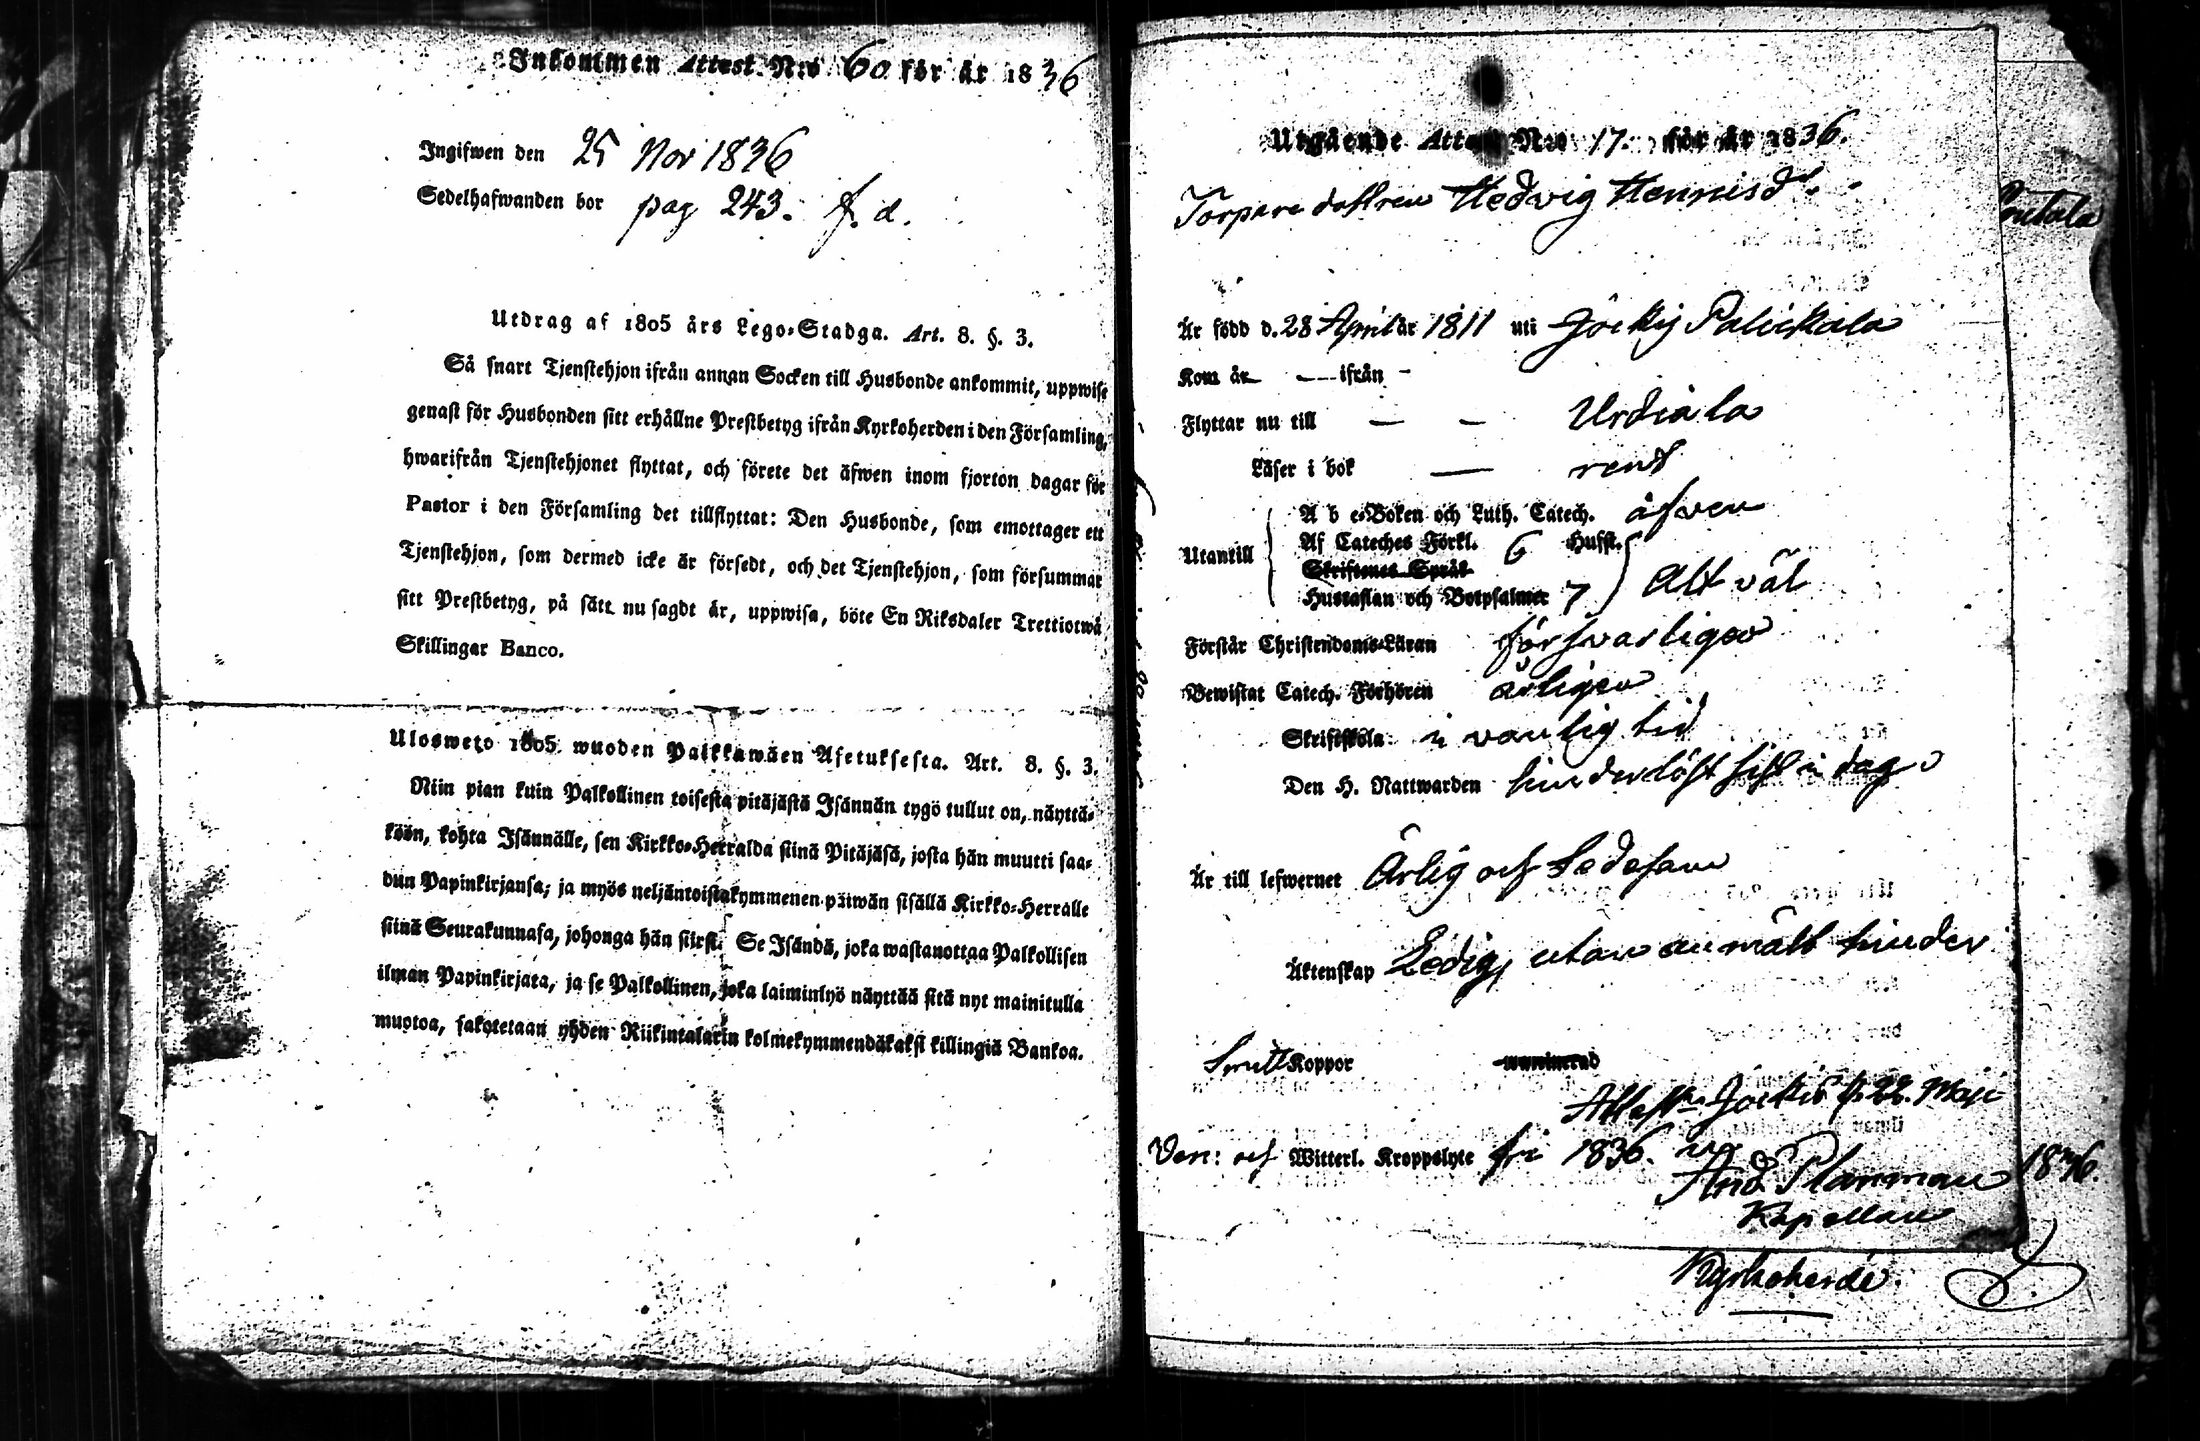 Inkommen Attest N:o 60 för år 1836
Ingifwen den 25 Nov 1836
Sedelhafwanden bor pag 243. f. d.
Utdrag af 1805 års Lego-Stadga. Art. 8. §. 3.
Så snart Tjenstehjon ifrån annan Socken till Husbonde ankommit, uppwise
genast för Husbonden sitt erhållne Prestbetyg ifrån Kyrkoherden i den Församling,
hwarifrån Tjenstehjonet flyttat, och förete det äfwen inom fjorton dagar för
Pastor i den Församling det tillflyttat: Den Husbonde, som emottager ett
Tjenstehjon, som dermed icke är försedt, och det Tjenstehjon, som försummar
sitt Prestbetyg, på sätt nu sagdt är, uppwisa, böte En Riksdaler Trettiotwå
Skillingar Banco.
Ulosweto 1805 wuoden Palkkawäen Asetuksesta. Art. 8. §. 3.
Niin pian kuin Palkollinen toisesta pitäjästä Isännän tygö tullut on, näyttä-
köön, kohta Isännälle, sen Kirkko-Herralda siinä Pitäjäsä, josta hän muutti saa-
dun Papinkirjansa; ja myös neljäntoistakymmenen päiwän sisällä Kirkko-Herralle
siinä Seurakunnasa, johonga hän siirsi. Se Isändä, joka wastanottaa Palkollisen
ilman Papinkirjata, ja se Palkollinen, joka laiminlyö näyttää sitä nyt mainitulla
muotoa, sakotetaan yhden Riikintalarin kolmekymmendäkaksi killingiä Bankoa.
Utgående Attest N:o 17. för år 1836.
Torpare dottren Hedvig Hennisdr.
Är född d. 28 April år 1811 uti Jockis Palickala
Kom år — ifrån -
Flyttar nu till — — Urdiala
Läser i bok — rent
A b c-Boken och Luth. Catech. äfven
Utantill Af Cateches Förkl. 6 Hufst.
Skriftenes Språk
Hustaflan och Botpsalmer 7 Alt väl
Förstår Christendoms-Läran försvarligen
Bewistat Catech. Förhören årligen
Skriftskola i vanlig tid
Den H. Nattwarden hinderlöst sist i dag
Är till lefwernet Ärlig och sedesam
Äktenskap Ledig, utan anmält hinder
Smitt Koppor vaccinerad
Attest. Jockis d. 22. Maji
Ven: och Witterl. Kroppslyte fri 1836.
And. Planman 1836.
Kapellan
Kyrkoherde.